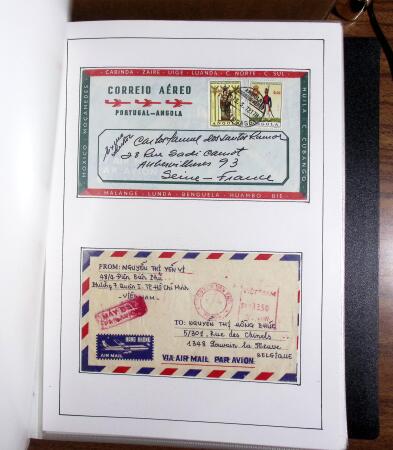 CABINDA - ZAIRE - UIGE - LUANDA - C. NORTE - C. SUL
CORREIO AÉREO
PORTUGAL-ANGOLA
MOXICO - MOÇAMEDES
HUILA - C. CUBANGO
ANGOLA
ANGOLA
Carlos Manuel dos Santos Ramos
28 Rue Sadi Carnot
Aubervilliers 93
Seine - France
MALANGE - LUNDA - BENGUELA - HUAMBO - BIÉ
FROM: NGUYỄN THỊ YẾN VI
48/9 Điện Biên Phủ
Phường 7. Quận 1. TP. Hồ Chí Minh
- VIỆTNAM -
VIETNAM
MÁY BAY
PAR AVION
HÀNG KHÔNG
AIR MAIL
TO: NGUYỄN THỊ HỒNG PHÚC
5/308, Rue des
1348 Louvain la Neuve
BELGIQUE
VIA AIR MAIL PAR AVION